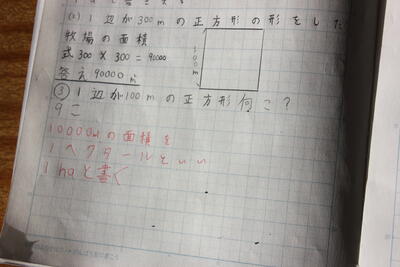 (2) 1辺が300mの正方形の形をした
牧場の面積
300m
式300×300=90000
答え90000㎡
③1辺が100mの正方形何こ?
9こ
10000㎡の面積を
1ヘクタールといい
1haと書く